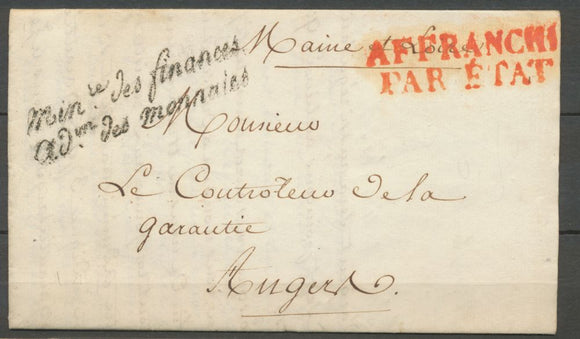 Maine et Loire
AFFRANCHI
PAR ÉTAT
Min.re des finances
Adm.on des monnaies
Monsieur
Le Controleur de la
garantie
Angers.